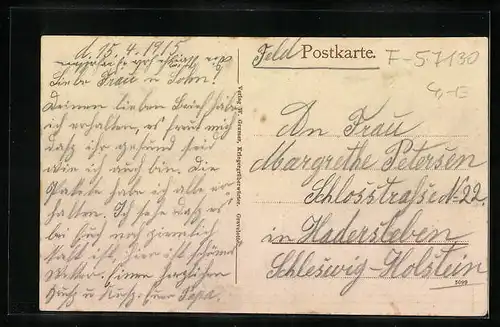 d. 15. 4. 1915
Liebe Frau u Sohn!
Deinen lieben Brief habe
ich erhalten, es freut mich
daß ihr gesund seid
wie ich auch bin. Die
Pakete habe ich alle er-
halten. Ich sehe daß es
bei Euch noch ziemlich
kalt ist, hier ist schönes
Wetter. einen herzlichen
Gruß u Kuß Euer Papa.
Feld Postkarte.
F-57130
An Frau
Margrethe Petersen
Schlosstraße No 22.
in Hadersleben
Schleswig-Holstein